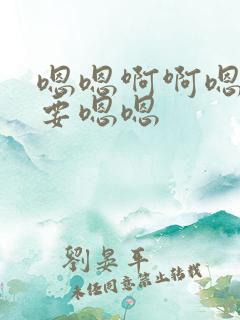 嗯嗯啊啊嗯
要嗯嗯
劉晏平
未经同意禁止转载